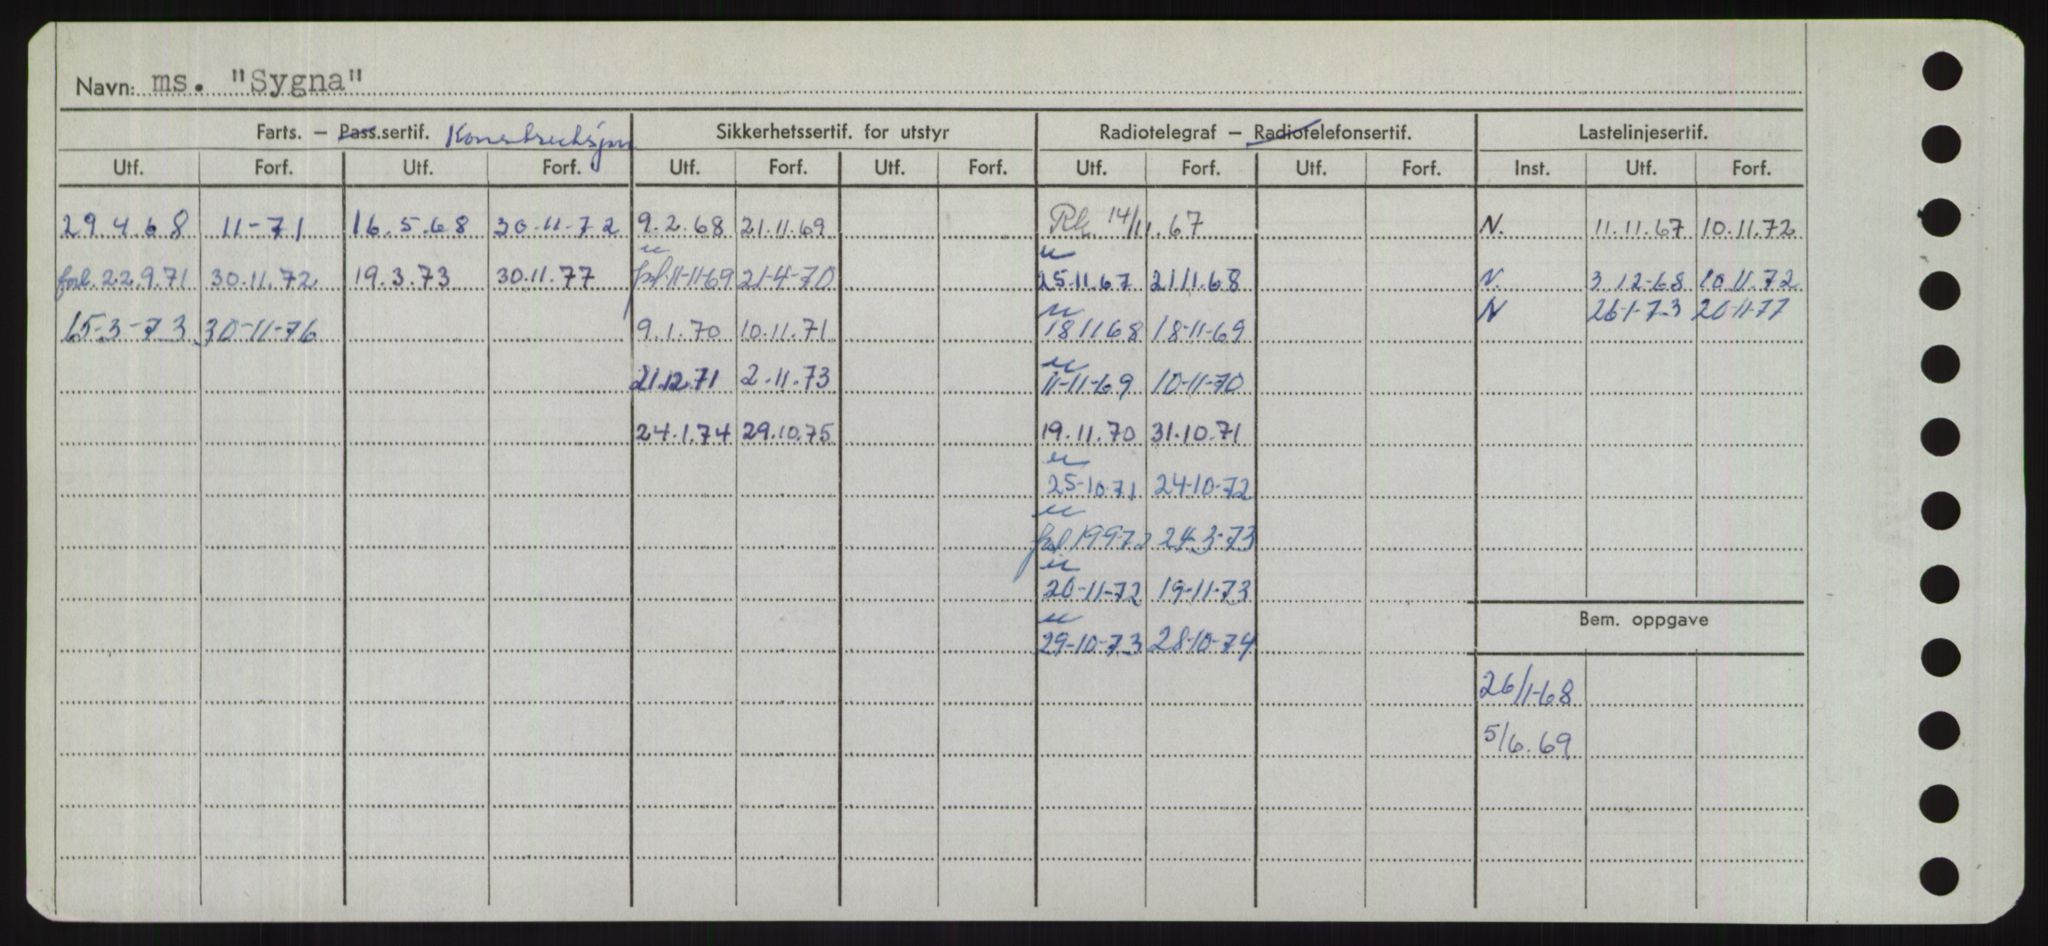 Navn: ms. "Sygna"
Farts. – Pass.sertif. Konstruksjon Sikkerhetssertif. for utstyr Radiotelegraf – Radiotelefonsertif. Lastelinjesertif.
Utf. Forf. Utf. Forf. Utf. Forf. Utf. Forf. Utf. Forf. Utf. Forf. Inst. Utf. Forf.
29.4.68 11-71 16.5.68 30-11-72 9.2.68 21.11.69 14/11.67 N. 11.11.67 10.11.72
forl. 22.9.71 30.11.72 19.3.73 30.11.77 forl 11-11-69 21-4-70 25.11.67 21.11.68 N. 3.12-68 10.11.72
N 26-1-73 20-11-77
15-3-73 30-11-76 9.1.70 10.11.71 18.11.68 18-11-69
21.12.71 2.11.73 11-11-69 10-11-70
24.1.74 29.10.75 19.11.70 31.10.71
25-10.71 24-10-72
forl 19972 24-3-73
20-11-72 19-11-73
Bem. oppgave
29-10-73 28-10-74
26/1-68
5/6.69